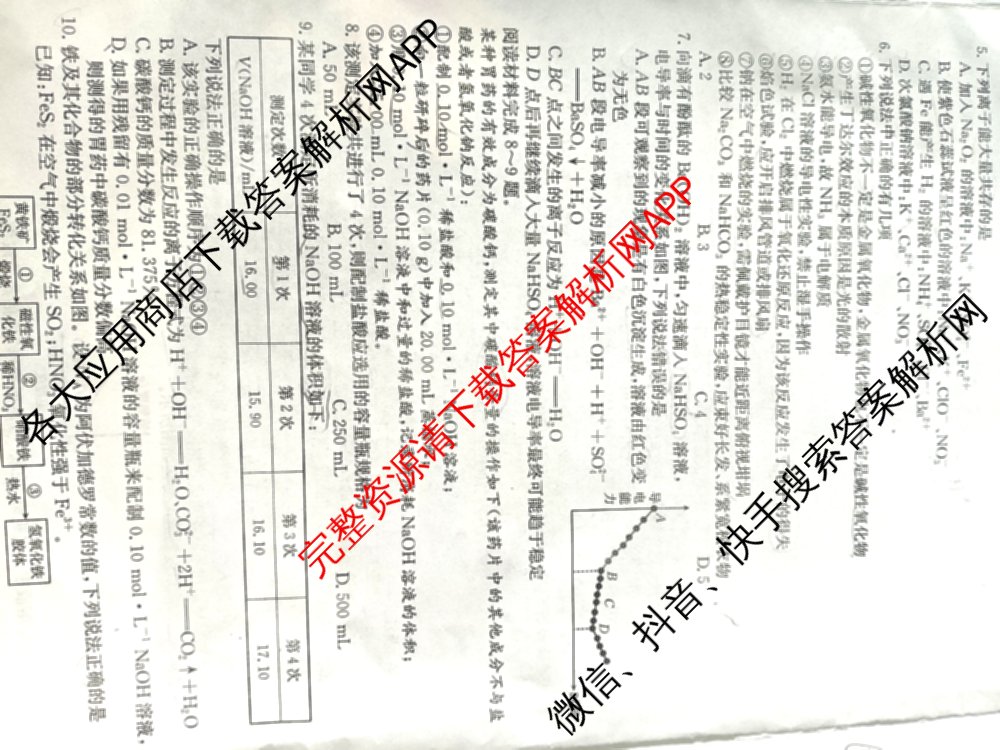 5. 下列离子能大量共存的是
A. 加入 Na₂O₂ 的溶液中:Na⁺、K
B. 使紫色石蕊试液呈红色的溶液中
ClO⁻、NO₃⁻
C. 遇 Fe 能产生 H₂ 的溶液中:NH₄⁺
D. 次氯酸钠溶液中:K⁺、Ca²⁺、Cl⁻、NO₃⁻
6. 下列说法中正确的有几项
①碱性氧化物不一定是金属氧化物,金属氧化物
定是碱性氧化物
②产生丁达尔效应的本质原因是光的散射
③氨水能导电,故 NH₃ 属于电解质
④NaCl 溶液的导电性实验,禁止湿手操作
⑤H₂ 在 Cl₂ 中燃烧属于氧化还原反应,因为该反应发生
得失
⑥焰色试验,应开启排风管道或排风扇
⑦钠在空气中燃烧的实验,需佩戴护目镜才能近距离俯视坩埚
⑧比较 Na₂CO₃ 和 NaHCO₃ 的热稳定性实验,应束好长发、系紧宽
物
A. 2 B. 3 C. 4 D. 5
7. 向滴有酚酞的 B
溶液中,匀速滴入 NaHSO₄ 溶液,
电导率与时间的变
如图,下列说法错误的是
A. AB 段可观察到的
有白色沉淀生成,溶液由红色变
为无色
B. AB 段电导率减小的原
Ba²⁺+OH⁻+H⁺+SO₄²⁻
══BaSO₄↓+H₂O
C. BC 点之间发生的离子反应为
OH⁻══H₂O
D. D 点后再继续滴入大量 NaHSO₄
溶液电导率最终可能趋于稳定
导
电
能
力
A
B
C
D
阅读材料完成 8~9 题。
某种胃药的有效成分为碳酸钙,测定其中碳酸
量的操作如下(该药片中的其他成分不与盐
酸或者氢氧化钠反应):
①配制 0.10 mol·L⁻¹ 稀盐酸和 0.10 mol·L⁻¹
溶液;
一粒研碎后的药片(0.10 g)中加入 20.00 mL 蒸
③
mol·L⁻¹ NaOH 溶液中和过量的稀盐酸,记
耗 NaOH 溶液的体积;
④加
00 mL 0.10 mol·L⁻¹ 稀盐酸。
8. 该测
共进行了 4 次,则配制盐酸应选用的容量瓶规格
A. 50 m
B. 100 mL C. 250 mL D. 500 mL
9. 某同学 4 次
所消耗的 NaOH 溶液的体积如下:
测定次数 第 1 次 第 2 次 第 3 次 第 4 次
V(NaOH 溶液)/m 16.00 15.90 16.10 17.10
下列说法正确的是
A. 该实验的正确操作顺
①②③④
B. 测定过程中发生反应的离
为 H⁺+OH⁻══H₂O、CO₃²⁻+2H⁺══CO₂↑+H₂O
C. 碳酸钙的质量分数为 81.375
D. 如果用残留有 0.01 mol·L⁻¹
溶液的容量瓶来配制 0.10 mol·L⁻¹ NaOH 溶液,
则测得的胃药中碳酸钙质量分数偏
10. 铁及其化合物的部分转化关系如图。设
为阿伏加德罗常数的值,下列说法正确的是
已知:FeS₂ 在空气中煅烧会产生 SO₂;HN
化性强于 Fe³⁺。
黄铁矿
FeS₂
①
煅烧
磁性氧
化铁
②
稀HNO₃
铁
③
热水
氢氧化铁
胶体
各大应用商店下载答案解析网APP
完整资源请下载答案解析网APP
微信、抖音、快手搜索答案解析网